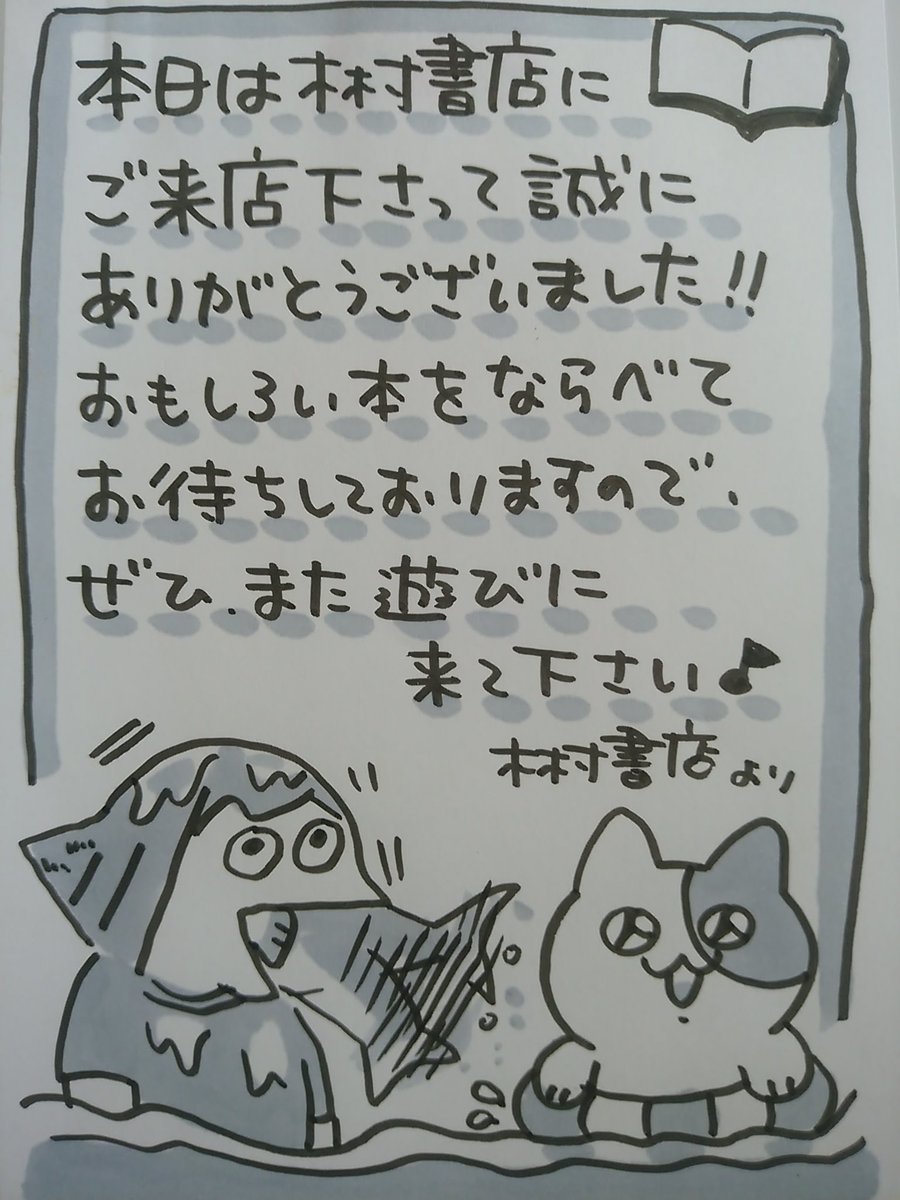 本日は木村書店に
ご来店下さって誠に
ありがとうございました!!
おもしろい本をならべて
お待ちしておりますので、
ぜひ、また遊びに
来て下さい♪
木村書店より